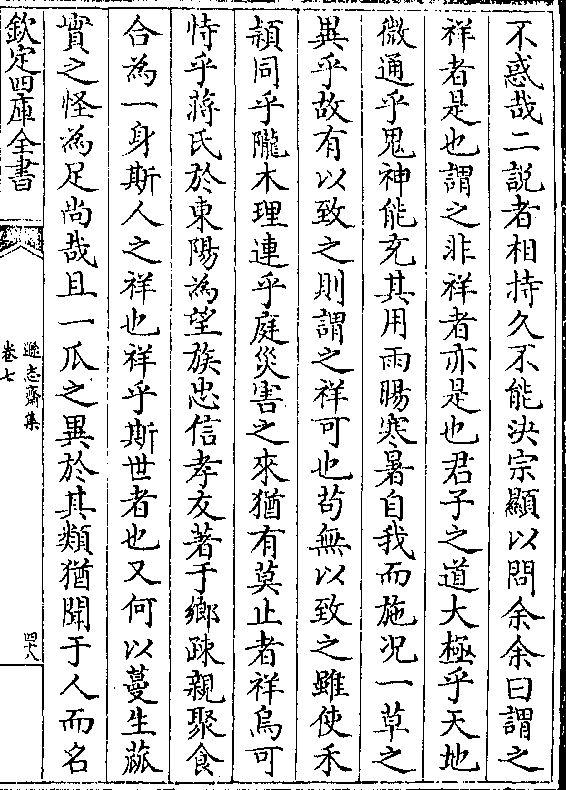 不惑哉二説者相持久不能決宗顯以問余余曰謂之
祥者是也謂之非祥者亦是也君子之道大極乎天地
微通乎鬼神能充其用雨暘寒暑自我而施况一草之
異乎故有以致之則謂之祥可也茍無以致之雖使禾
頴同乎隴木理連乎庭災害之來猶有莫止者祥烏可
恃乎蔣氏於東陽為望族忠信孝友著于鄉踈親聚食
合為一身斯人之祥也祥乎斯世者也又何以蔓生蓏
實之怪為足尚哉且一瓜之異於其類猶聞于人而名
欽定四庫全書
遜志齋集
卷七
四十八